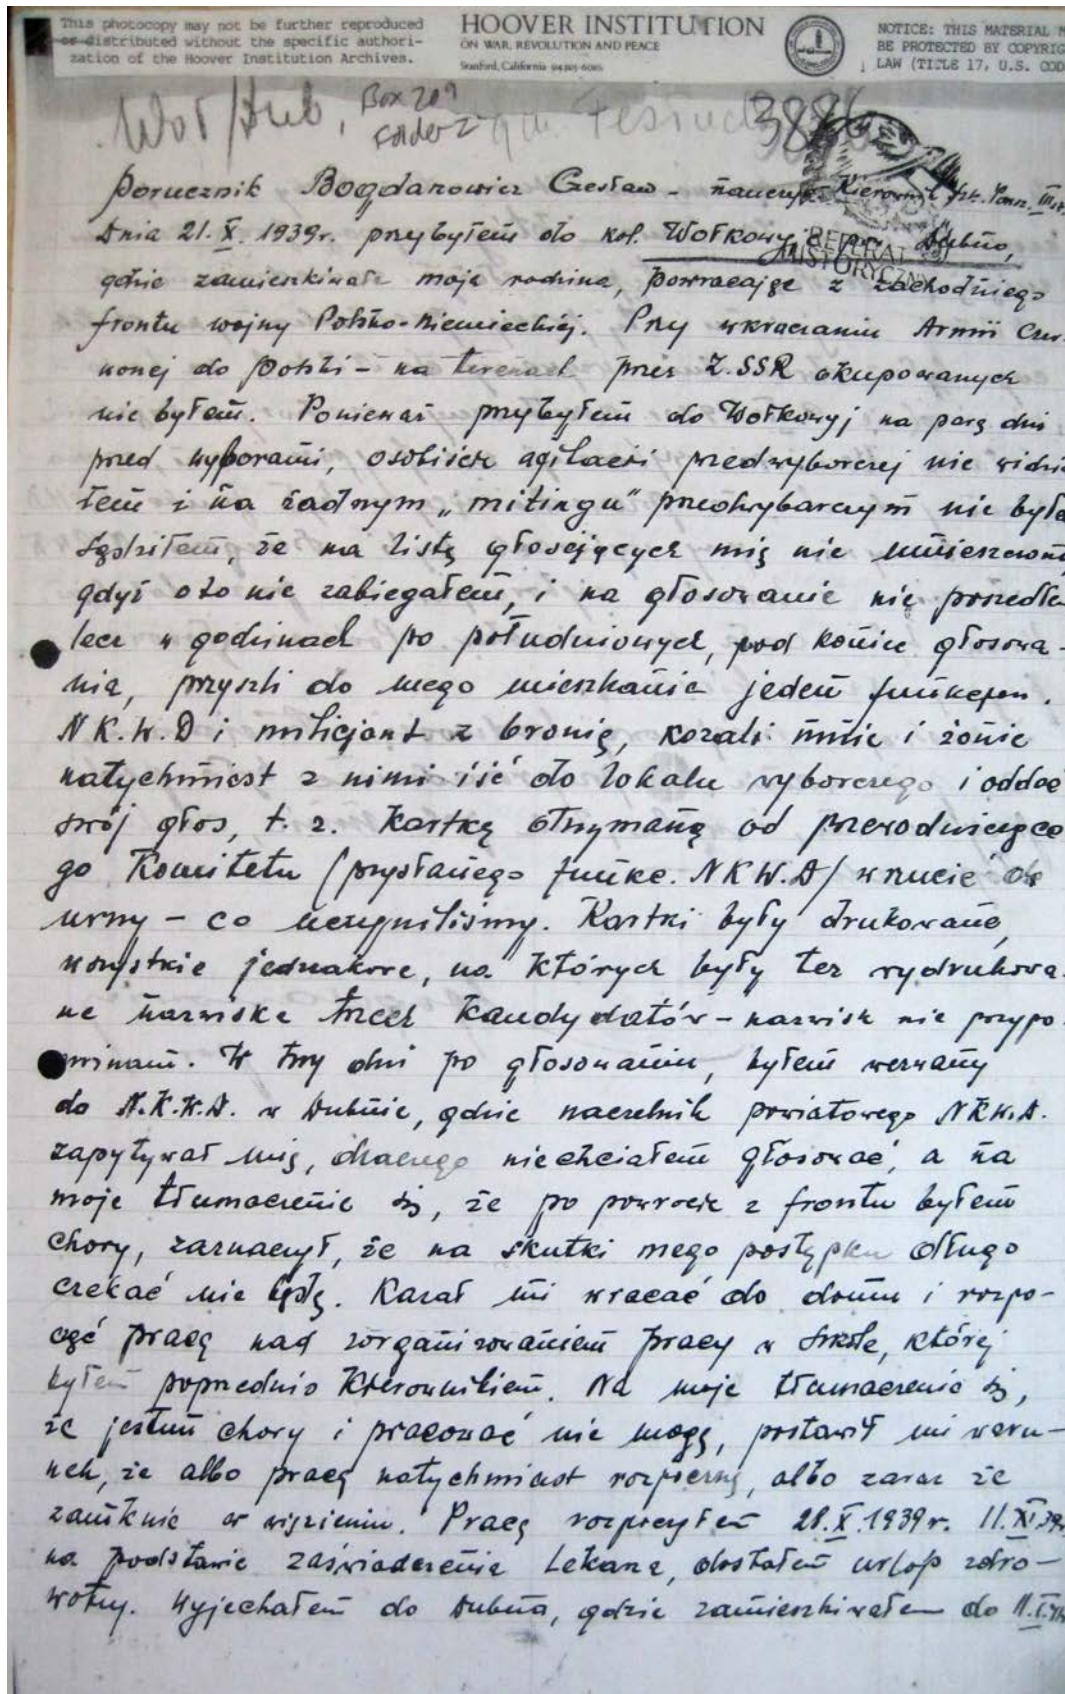 This photocopy may not be further reproduced
or distributed without the specific authori-
zation of the Hoover Institution Archives.
HOOVER INSTITUTION
ON WAR, REVOLUTION AND PEACE
Stanford, California 94305-6010
NOTICE: THIS MATERIAL M
BE PROTECTED BY COPYRIG
LAW (TITLE 17, U.S. COD
Woł/Dub, Box 209
Folder 2 gm. 3886
Porucznik Bogdanowicz Czesław - nauczyc. Kierownik szk. Powsz. III st.
REFERAT
HISTORYCZNY
Dnia 21.X.1939r. przybyłem do kol. Wołkowyje pow. Dubno,
gdzie zamieszkiwała moja rodzina, powracając z zachodniego
frontu wojny Polsko-niemieckiej. Przy wkraczaniu Armii Czer-
wonej do Polski - na terenach przez Z.SSR okupowanych
nie byłem. Ponieważ przybyłem do Wołkowyj na parę dni
przed wyborami, osobiście agitacji przedwyborczej nie widzia
łem i na żadnym „mitingu" przedwyborczym nie byłe
Sądziłem, że na listę głosujących mię nie umieszczono,
gdyż o to nie zabiegałem, i na głosowanie nie poszedłe
lecz w godzinach po południowych, pod koniec głosowa-
nia, przyszli do mego mieszkania jeden funkcjon.
N.K.W.D i milicjant z bronią, kazali mnie i żonie
natychmiast z nimi iść do lokalu wyborczego i oddać
swój głos, t. z. Kartkę otrzymaną od przewodnicząc
go Komitetu (przysłanego funkc. NKW.D) wrzucić do
urny - co uczyniliśmy. Kartki były drukowane,
wszystkie jednakowe, na których były też wydrukowa-
ne nazwiska trzech kandydatów - nazwisk nie przypo-
minam. W trzy dni po głosowaniu, byłem wezwany
do N.K.W.D. w Dubnie, gdzie naczelnik powiatowego NKW.D.
zapytywał mię, dlaczego niechciałem głosować, a na
moje tłumaczenie się, że po powrocie z frontu byłem
chory, zaznaczył, że na skutki mego postępku długo
czekać nie będę. Kazał mi wracać do domu i rozpo-
cząć pracę nad zorganizowaniem pracy w szkole, której
byłem poprzednio Kierownikiem. Na moje tłumaczenie się,
że jestem chory i pracować nie mogę, postawił mi waru-
nek, że albo pracę natychmiast rozpocznę, albo zaraz że
zamknie w więzieniu. Pracę rozpocząłem 28.X.1939r. 11.XI.39r
na podstawie zaświadczenia Lekarza, dostałem urlop zdro-
wotny. Wyjechałem do Dubna, gdzie zamieszkiwałem do